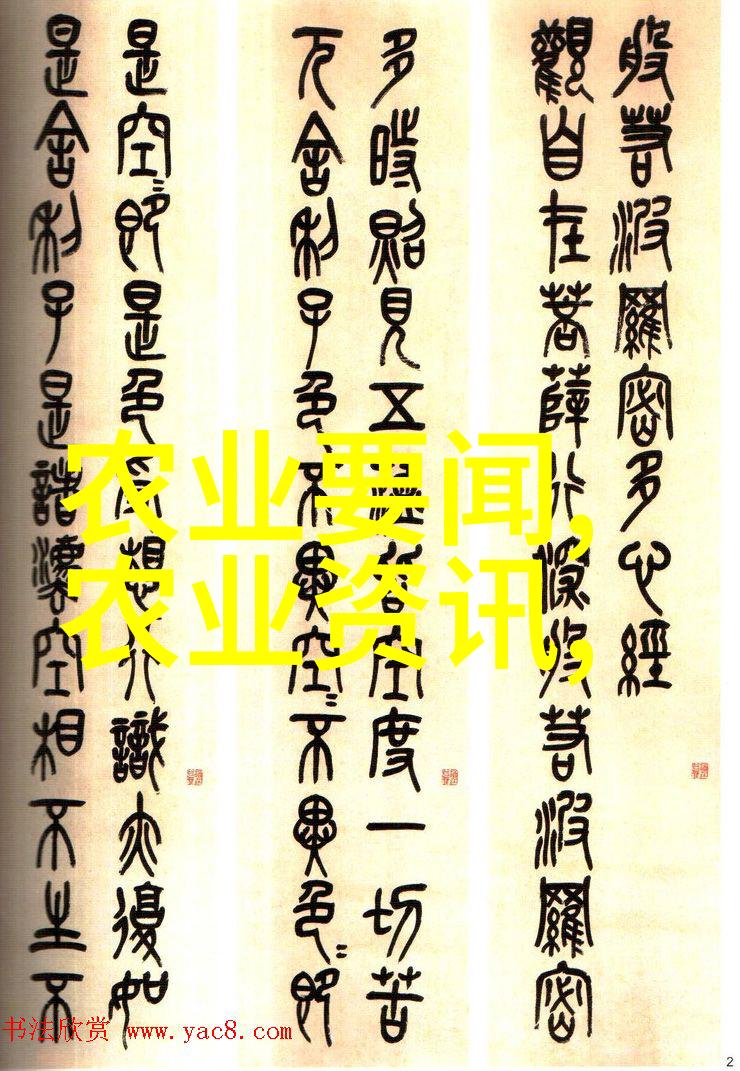 般若波羅密多心經
觀自在菩薩行深般若波羅密
多時照見五蘊皆空度一切苦
厄舍利子色不異空〻不異色〻即
是空〻即是色受想行識亦復如
是舍利子是諸灋空相不生不
农业要闻,
农业资讯,
书法欣赏 www.yac8.com
2